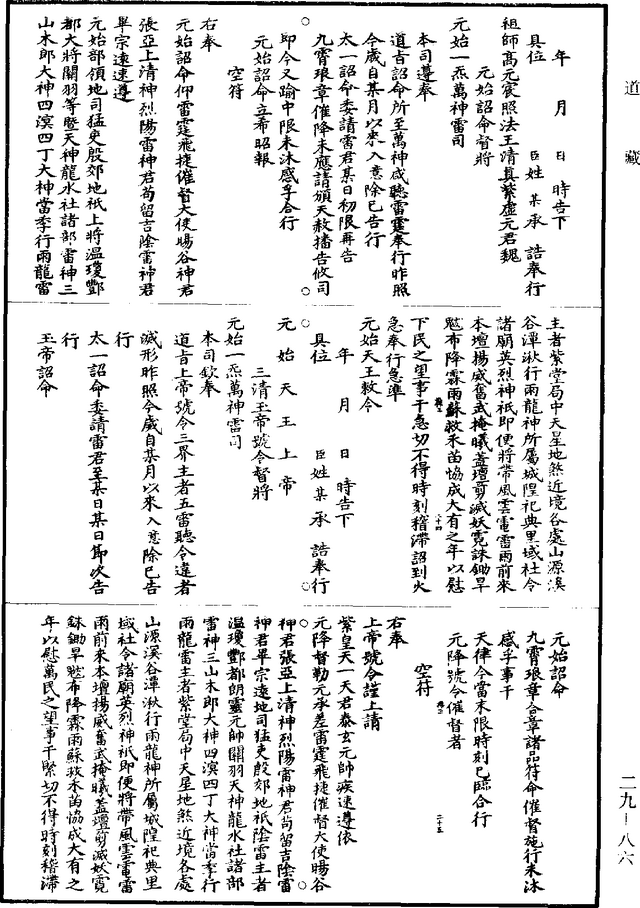 道藏
年　月　日　時告下
具位　臣姓某承　誥奉行
祖師高元宸照法王清真紫虛元君魏
元始詔命督將
元始一炁萬神雷司
本司遵奉
道旨詔命所至萬神咸聽雷霆奉行昨照
今歲自某月以來入意除已告行
太一詔命委請雷君某日初限再告
九霄琅章催降未應請頒天赦播告攸司
即今又踰中限未沐感孚合行
元始詔命立希昭報
空符
右奉
元始詔命仰雷霆飛捷催督大使暘谷神君
張亞上清神烈陽雷神君苟留吉陰雷神君
畢宗遠速遵
元始部領地司猛吏殷郊地祇上將溫瓊酆
都大將關羽等暨天神龍水社諸部雷神三
山木郎大神四溟四丁大神當季行雨龍雷
主者紫堂局中天星地煞近境各處山源溪
谷潭湫行雨龍神所屬城隍祀典里域社令
諸廟英烈神祇即便將帶風雲電雷雨前來
本壇揚威奮武掩曦蓋壇剪滅妖霓誅鋤旱
魃布降霖雨蘇救禾苗協成大有之年以慰
下民之望事干急切不得時刻稽滯詔到火
急奉行急準
元始天王敕令
年　月　日　時告下
具位　臣姓某承　誥奉行
元始天王上帝
三清玉帝號令督將
元始一炁萬神雷司
本司欽奉
道旨上帝號令三界主者五雷聽令違者
滅形昨照今歲自某月以來入意除已告
行
太一詔命委請雷君至某日某日節次告
行
玉帝詔命
元始詔命
九霄琅章合章諸品符命催督施行未沐
感孚事干
天律今當末限時刻已臨合行
元降號令催督者
空符
二十五
右奉
上帝號令謹上請
紫皇天一天君泰玄元帥疾速遵依
元降督勒元承差雷霆飛捷催督大使暘谷
神君張亞上清神烈陽雷神君苟留吉陰雷
神君畢宗遠地司猛吏殷郊地祇陰雷主者
溫瓊酆都朗靈元帥關羽天神龍水社諸部
雷神三山木郎大神四溟四丁大神當季行
雨龍雷主者紫堂局中天星地煞近境各處
山源溪谷潭湫行雨龍神所屬城隍祀典里
域社令諸廟英烈神祇即便將帶風雲電雷
雨前來本壇揚威奮武掩曦蓋壇剪滅妖霓
誅鋤旱魃布降霖雨蘇救禾苗協成大有之
年以慰萬民之望事干緊切不得時刻稽滯
二九－八六